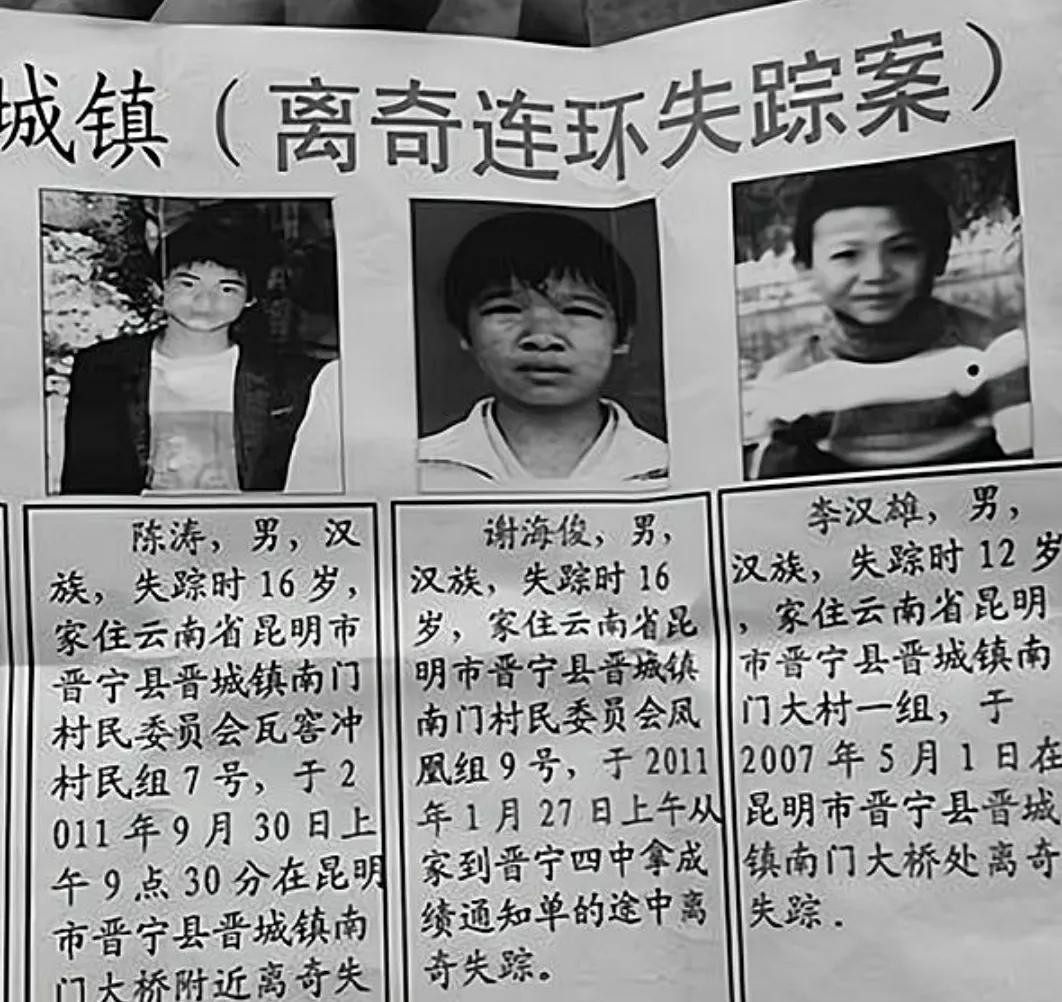 城镇（离奇连环失踪案）
陈涛，男，汉
族，失踪时 16 岁，
家住云南省昆明市
晋宁县晋城镇南门
村民委员会瓦窑冲
村民组 7 号，于 2
011 年 9 月 30 日上
午 9 点 30 分在昆明
市晋宁县晋城镇南
门大桥附近离奇失
谢海俊，男，
汉族，失踪时 16
岁，家住云南省昆
明市晋宁县晋城镇
南门村民委员会凤
凰组 9 号，于 2011
年 1 月 27 日上午从
家到晋宁四中拿成
绩通知单的途中离
奇失踪。
李汉雄，男，
汉族，失踪时 12 岁
，家住云南省昆明
市晋宁县晋城镇南
门大村一组，于
2007 年 5 月 1 日在
昆明市晋宁县晋城
镇南门大桥处离奇
失踪．